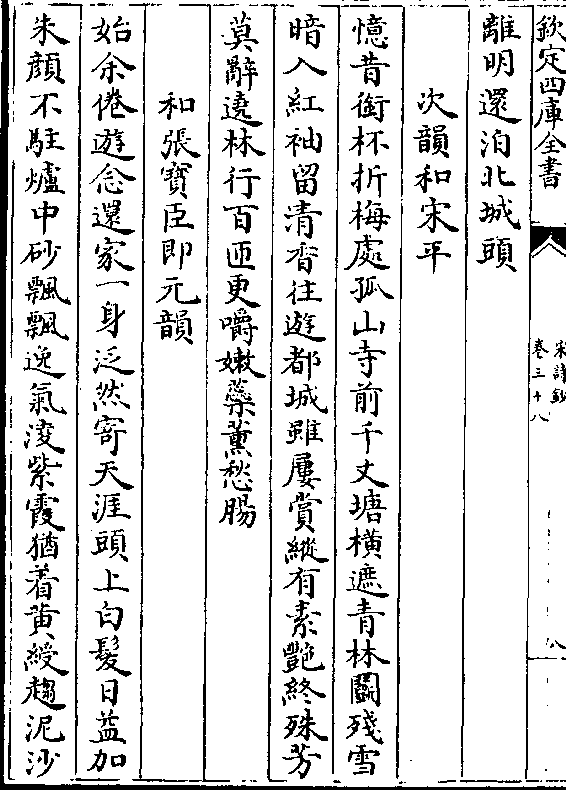 欽定四庫全書
宋詩鈔
卷三十八
離明還泊北城頭
次韻和宋平
憶昔銜杯折梅處孤山寺前千丈塘橫遮青林鬭殘雪
暗入紅袖留清香往遊都城雖屢賞縱有素艷終殊芳
莫辭遶林行百匝更嚼嫩蘂薰愁腸
和張寶臣即元韻
始余倦遊念還家一身泛然寄天涯頭上白髮日益加
朱顔不駐爐中砂飄飄逸氣淩紫霞猶着黄綬趨泥沙